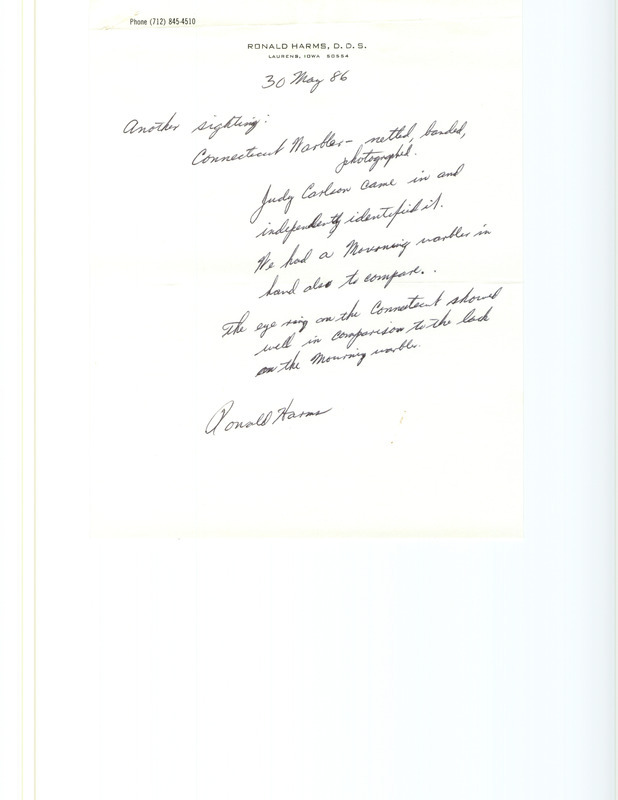 Phone (712) 845-4510
RONALD HARMS, D.D.S.
LAURENS, IOWA 50554
30 May 86
Another sighting:
Connecticut Warbler - netted, banded,
photographed.
Judy Carlson came in and
independently identified it.
We had a Mourning warbler in
hand also to compare.
The eye ring on the Connecticut showed
well in comparison to the lack
on the Mourning warbler.
Ronald Harms